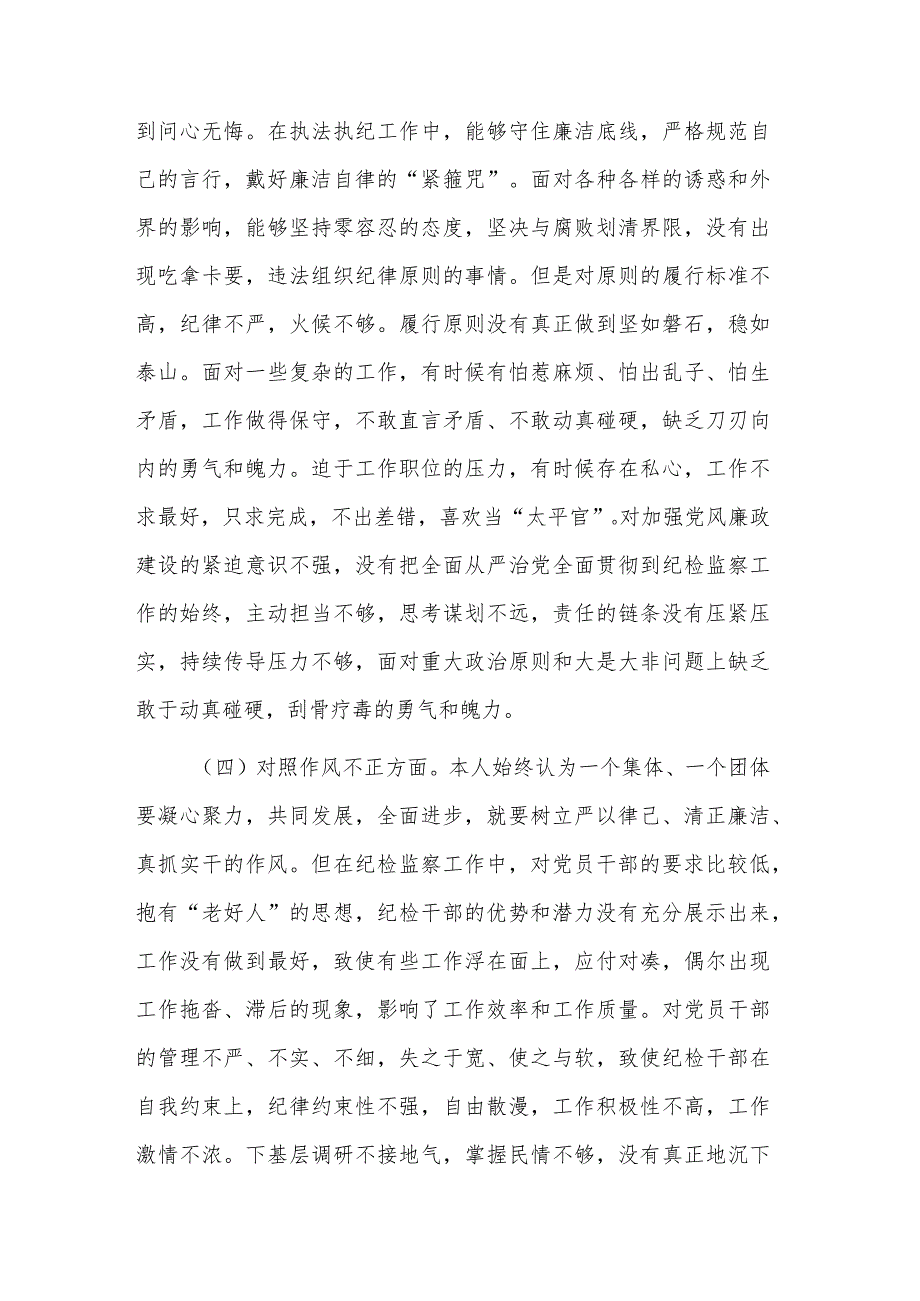 到问心无悔。在执法执纪工作中，能够守住廉洁底线，严格规范自
己的言行，戴好廉洁自律的“紧箍咒”。面对各种各样的诱惑和外
界的影响，能够坚持零容忍的态度，坚决与腐败划清界限，没有出
现吃拿卡要，违法组织纪律原则的事情。但是对原则的履行标准不
高，纪律不严，火候不够。履行原则没有真正做到坚如磐石，稳如
泰山。面对一些复杂的工作，有时候有怕惹麻烦、怕出乱子、怕生
矛盾，工作做得保守，不敢直言矛盾、不敢动真碰硬，缺乏刀刃向
内的勇气和魄力。迫于工作职位的压力，有时候存在私心，工作不
求最好，只求完成，不出差错，喜欢当“太平官”。对加强党风廉政
建设的紧迫意识不强，没有把全面从严治党全面贯彻到纪检监察工
作的始终，主动担当不够，思考谋划不远，责任的链条没有压紧压
实，持续传导压力不够，面对重大政治原则和大是大非问题上缺乏
敢于动真碰硬，刮骨疗毒的勇气和魄力。
（四）对照作风不正方面。本人始终认为一个集体、一个团体
要凝心聚力，共同发展，全面进步，就要树立严以律己、清正廉洁、
真抓实干的作风。但在纪检监察工作中，对党员干部的要求比较低，
抱有“老好人”的思想，纪检干部的优势和潜力没有充分展示出来，
工作没有做到最好，致使有些工作浮在面上，应付对凑，偶尔出现
工作拖沓、滞后的现象，影响了工作效率和工作质量。对党员干部
的管理不严、不实、不细，失之于宽、使之与软，致使纪检干部在
自我约束上，纪律约束性不强，自由散漫，工作积极性不高，工作
激情不浓。下基层调研不接地气，掌握民情不够，没有真正地沉下